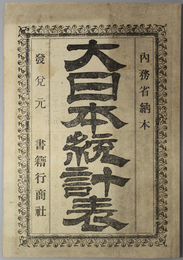 內務省納本
大日本統計表
發兌元 書籍行商社